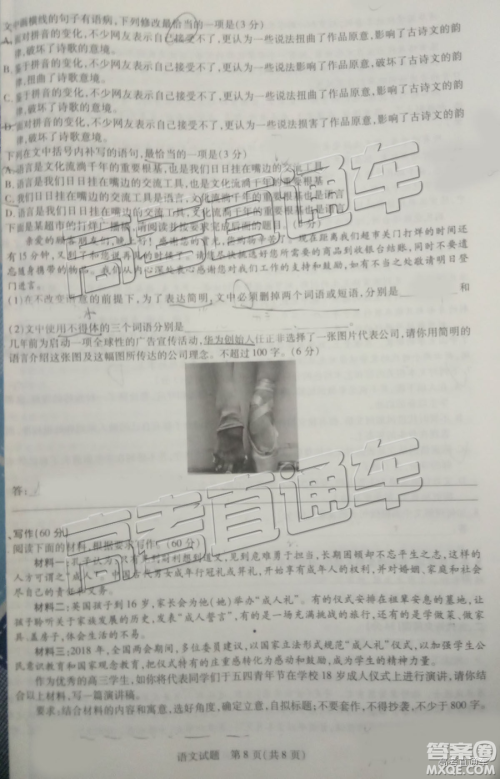 文中画横线的句子有语病,下列修改最恰当的一项是(3分)
A.面对拼音的变化,不少网友表示自己接受不了,更认为一些说法扭曲了作品原意,影响了古诗文的韵
律,破坏了诗歌的意境。
B.鉴于拼音的变化,不少网友表示自己接受不了,更认为一些说法破坏了作品原意,影响了古诗文的韵
律,扭曲了诗歌意境。
C.鉴于拼音的变化,不少网友表示自己接受不了,更认为一些说法扭曲了作品原意,影响了古诗文的韵
律,破坏了诗歌意境。
D.面对拼音的变化,不少网友表示自己接受不了,更认为一些说法损害了作品原意,影响了古诗文的韵
律,破坏了诗歌意境。
下列在文中括号内补写的语句,最恰当的一项是(3分)
A.语言是文化流淌千年的重要根基,也是我们日日挂在嘴边的交流工具
B.语言是我们日日挂在嘴边的交流工具,也是文化流淌千年的重要根基
C.我们日日挂在嘴边的交流工具是语言,文化流淌千年的重要根基也是语言
D.语言是我们日日挂在嘴边的交流工具,文化流淌千年的重要根基也是语言
下面是某超市的打烊广播稿,请阅读并按要求完成后面的题目。
亲爱的顾客朋友们,晚上好!现在距离我们超市关门打烊的时间还
有15分钟,
登门造言。
(1)在不改变原意的前提下,为了表达简明,文中必须删掉两个词语或短语,分别是 和
(2)文中使用不得体的三个词语分别是
几年前为启动一项全球性的广告宣传活动,华为创始人任正非选择了一张图片代表公司,请你用简明的
语言介绍这张图及这幅图所传达的公司理念。不超过100字。(6分)
答:
写作(60分)
阅读下面的材料,根据要求写作。(60分)
材料一:孔子认为,只有见到财利想到道义,见到危难勇于担当,长期困顿却不忘平生之志,这样的
人方可谓之“成人”。中国古代男女成年行冠礼成笄礼,开始享有成年人的权利,并对婚姻、家庭和社会
尽自己的责任。
材料二:英国孩子到16岁,家长会为他(她)举办“成人礼”。有的仪式安排在祖辈安息的墓地,让
孩子聆听关于家族发展的历史,发表“成人宣言”;有的是一场充满挑战的旅行,还有的是学做菜、做家
具、盖房子,体会生活的不易。
材料三:2018年,全国两会期间,多位委员建议,以国家立法形式规范“成人礼”仪式,以加强学生公
民意识教育和国家观念教育,把仪式特有的庄重感转化为感动和鼓励,成为学生的精神力量。
作为优秀的高三学生,如你将代表同学们于五四青年节在学校18岁成人仪式上进行演讲,请你结
合以上材料,写一篇演讲稿。
要求:结合材料的内容和寓意,选好角度,确定立意,自拟标题,不要套作,不得抄袭,不少于800字。
语文试题 第8页(共8页)
高考直通车
高考直通车
答案圈
MXQE.COM